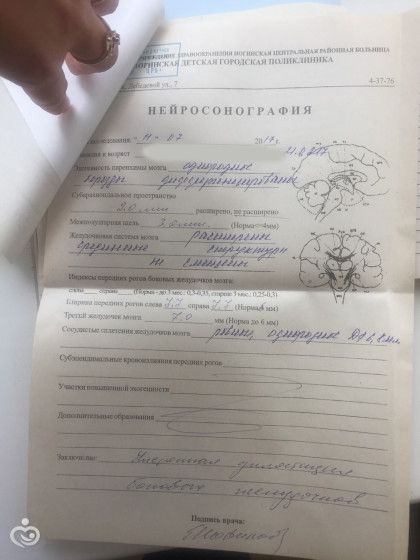 УЧРЕЖДЕНИЕ ЗДРАВООХРАНЕНИЯ НОГИНСКАЯ ЦЕНТРАЛЬНАЯ РАЙОННАЯ БОЛЬНИЦА
НОГИНСКАЯ ДЕТСКАЯ ГОРОДСКАЯ ПОЛИКЛИНИКА
Лебедевой ул., 7 4-37-76
НЕЙРОСОНОГРАФИЯ
11-07 2017 г.
и возраст
Эхогенность паренхимы мозга однородная
борозды дифференцированные
Субарахноидальное пространство
2,0 мм расширено, не расширено
Межполушарная щель 3,0 мм (Норма<=4мм)
Желудочковая система мозга расширена
срединные структуры
не смещены
Индексы передних рогов боковых желудочков мозга:
слева справа (Норма - до 3 мес.: 0,3-0,35, старше 3 мес.: 0,25-0,3)
Ширина передних рогов слева 7,7 справа 7,7 (Норма 4мм)
Третий желудочек мозга 7,0 мм (Норма до 6 мм)
Сосудистые сплетения желудочков мозга ровные, однородные
Субэпендимальные кровоизлияния передних рогов
Участки повышенной эхогенности
Дополнительные образования
Заключение: Умеренная дилатация
боковых желудочков
Подпись врача: